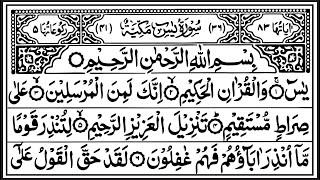 اٰیَاتُهَا ٨٣ (٣٦) سُوْرَةُ يٰسٓ مَكِّيَّةٌ (٤١) رُكُوْعَاتُهَا ٥
بِسْمِ اللهِ الرَّحْمٰنِ الرَّحِيْمِ
يٰسٓ ۚ وَالْقُرْاٰنِ الْحَكِيْمِ ۙ اِنَّكَ لَمِنَ الْمُرْسَلِيْنَ ۙ عَلٰى
صِرَاطٍ مُّسْتَقِيْمٍ ؕ تَنْزِيْلَ الْعَزِيْزِ الرَّحِيْمِ ۙ لِتُنْذِرَ قَوْمًا
مَّاۤ اُنْذِرَ اٰبَآؤُهُمْ فَهُمْ غٰفِلُوْنَ ۝ لَقَدْ حَقَّ الْقَوْلُ عَلٰٓى